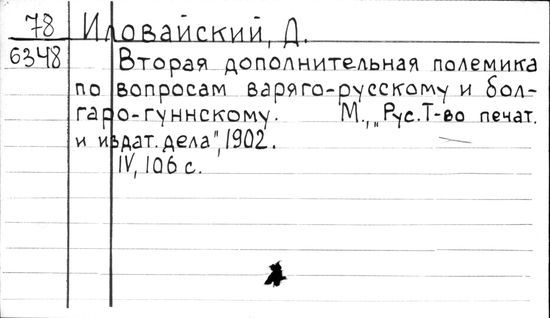 78 Иловайский, Д.
6348 Вторая дополнительная полемика
по вопросам варяго-русскому и бол-
гаро-гуннскому. М., „Рус. Т-во печат.
и издат. дела", 1902.
IV, 106 с.